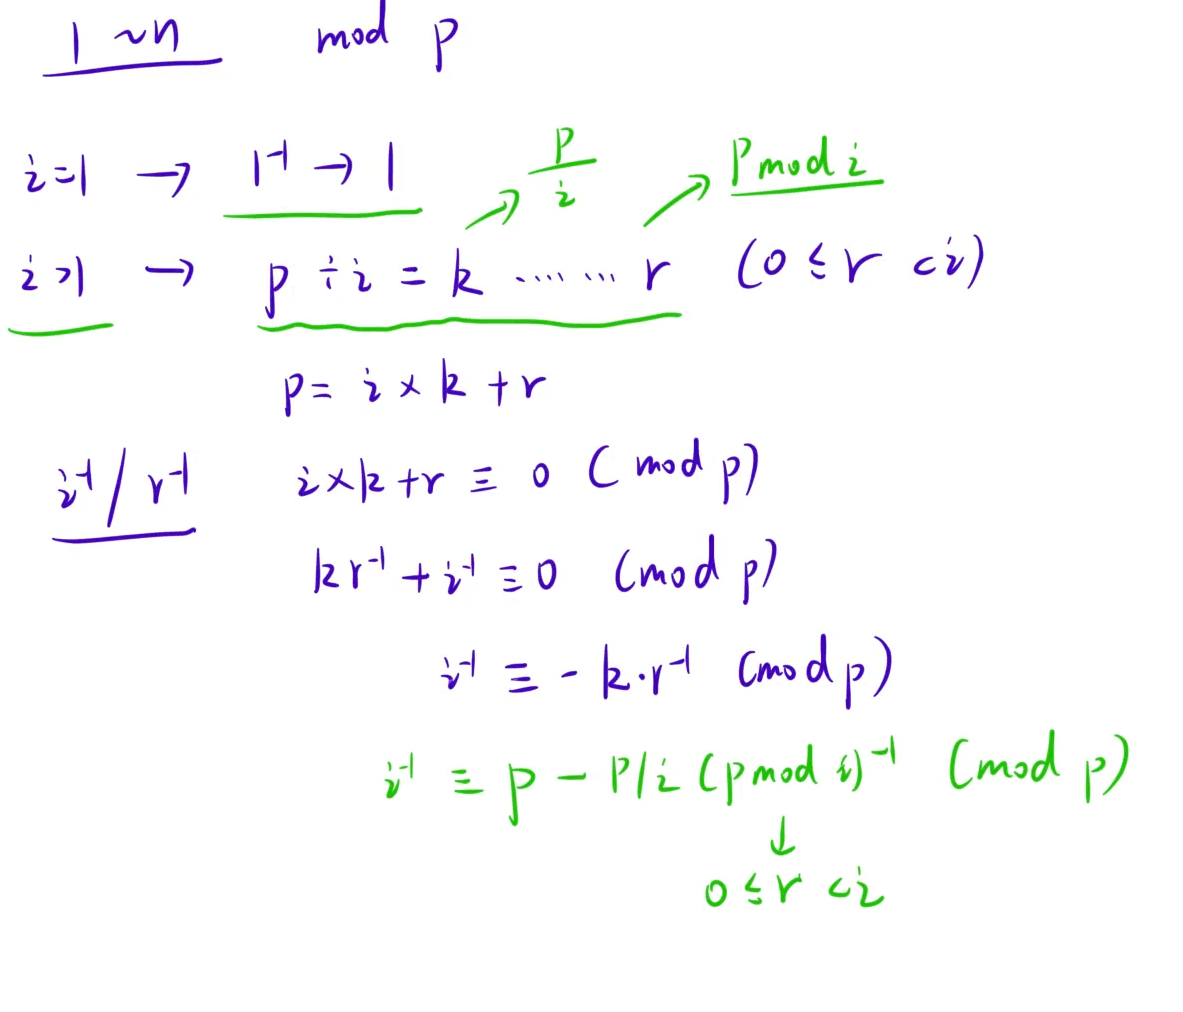 1 ~ n mod p
i=1 → 1⁻¹ → 1
p/i
P mod i
i>1 → p ÷ i = k ...... r (0 ≤ r < i)
p = i × k + r
i⁻¹/r⁻¹ i × k + r ≡ 0 (mod p)
kr⁻¹ + i⁻¹ ≡ 0 (mod p)
i⁻¹ ≡ - k·r⁻¹ (mod p)
i⁻¹ ≡ p - P/i (p mod i)⁻¹ (mod p)
↓
0 ≤ r < i